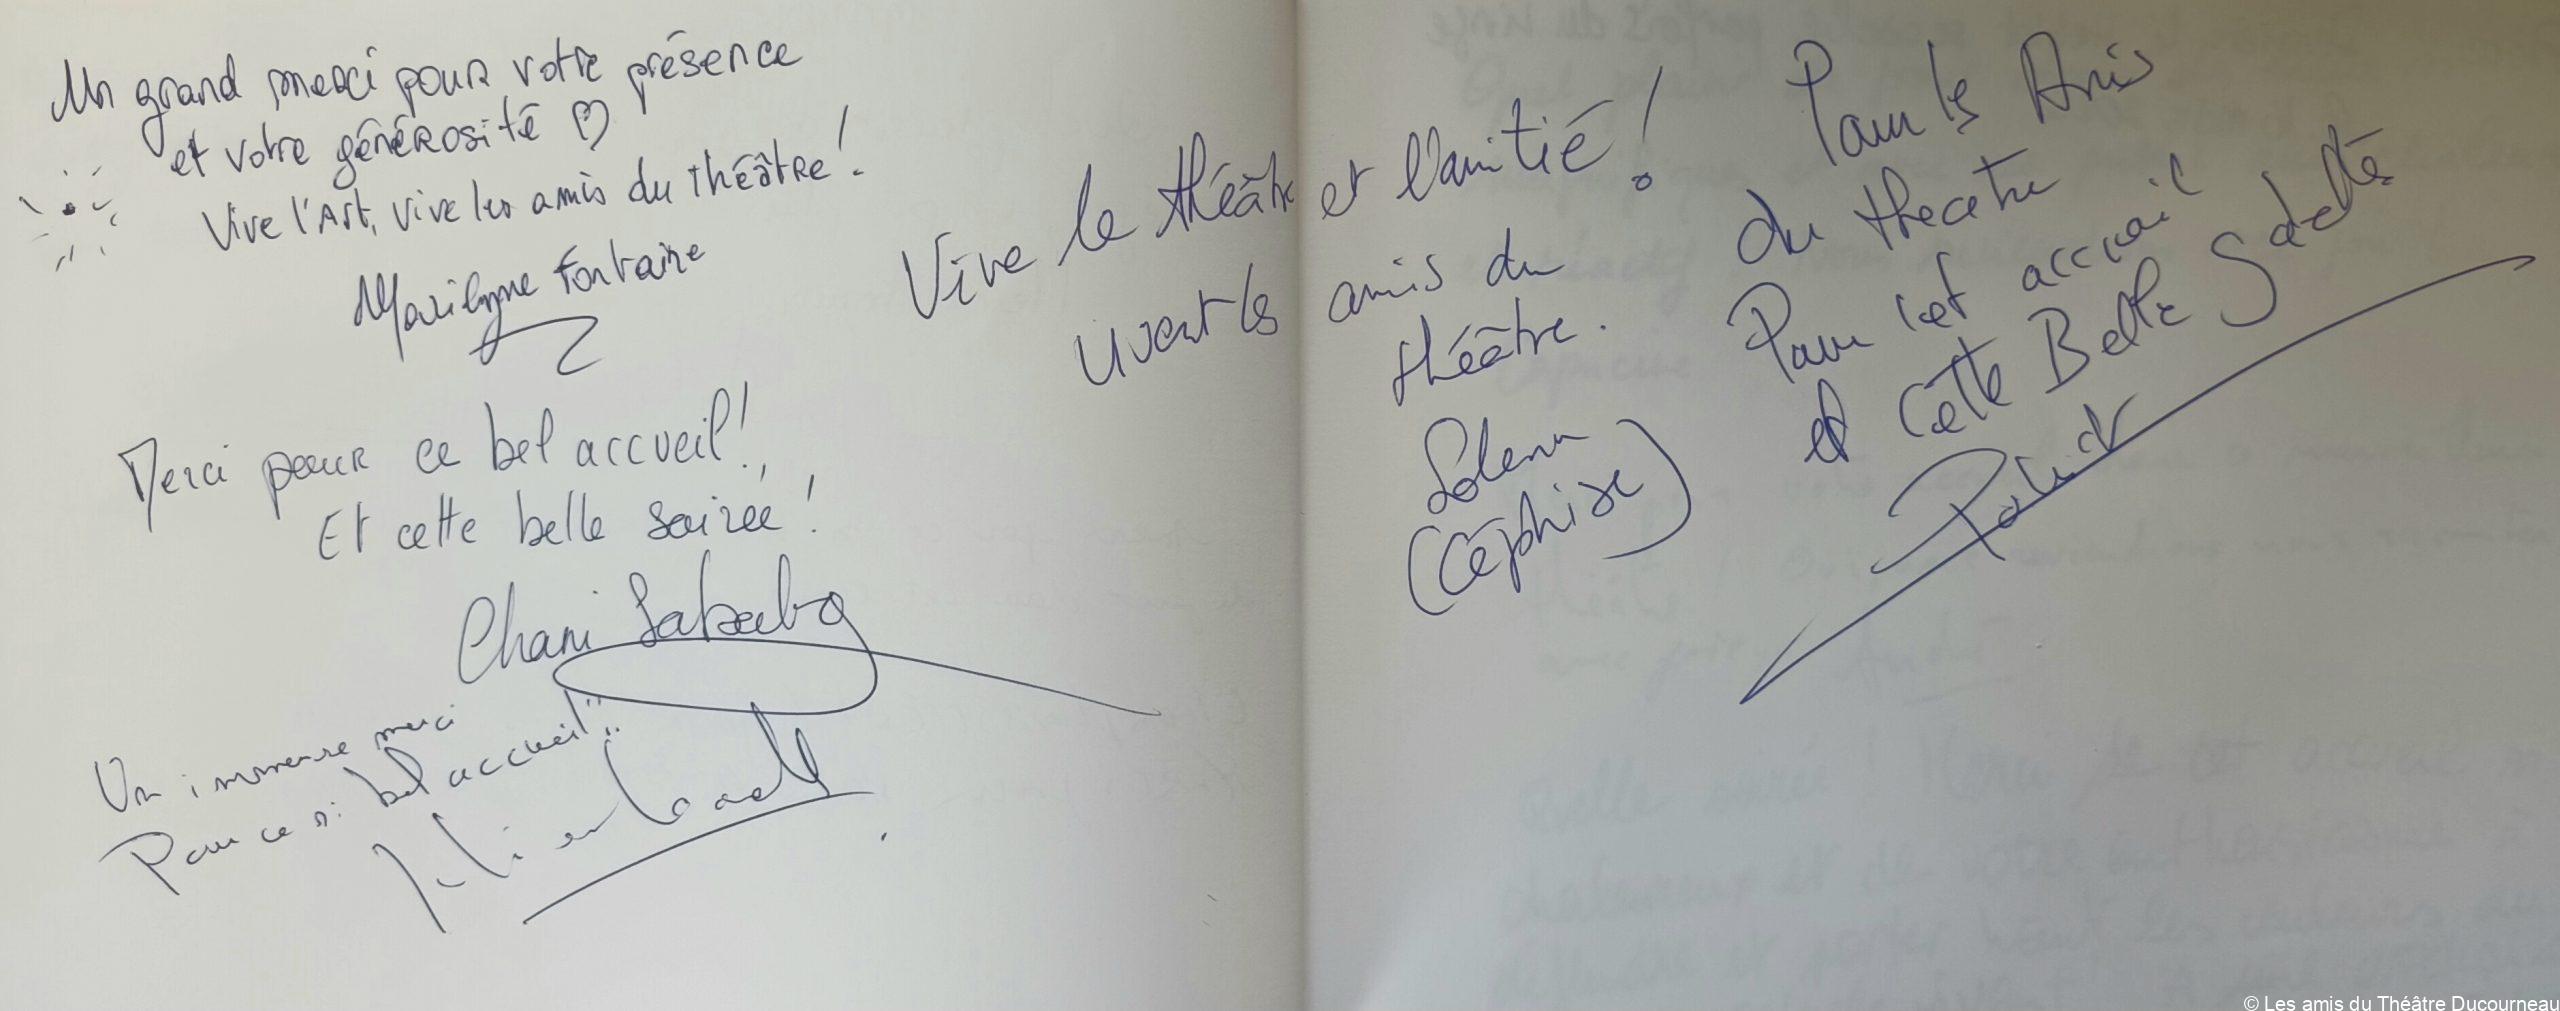 Un grand merci pour votre présence
et votre générosité ♡
Vive l'Art, vive les amis du théâtre !
Marilyne Fontaine
Merci pour ce bel accueil !
Et cette belle soirée !
Chani
Un immense merci
Pour ce si bel accueil !!
Vive le théâtre et l'amitié !
vivent les amis du
théâtre.
Solenn
(Céphise)
Pour les Amis
du theatre
Pour cet accueil
et cette Belle
© Les amis du Théâtre Ducourneau